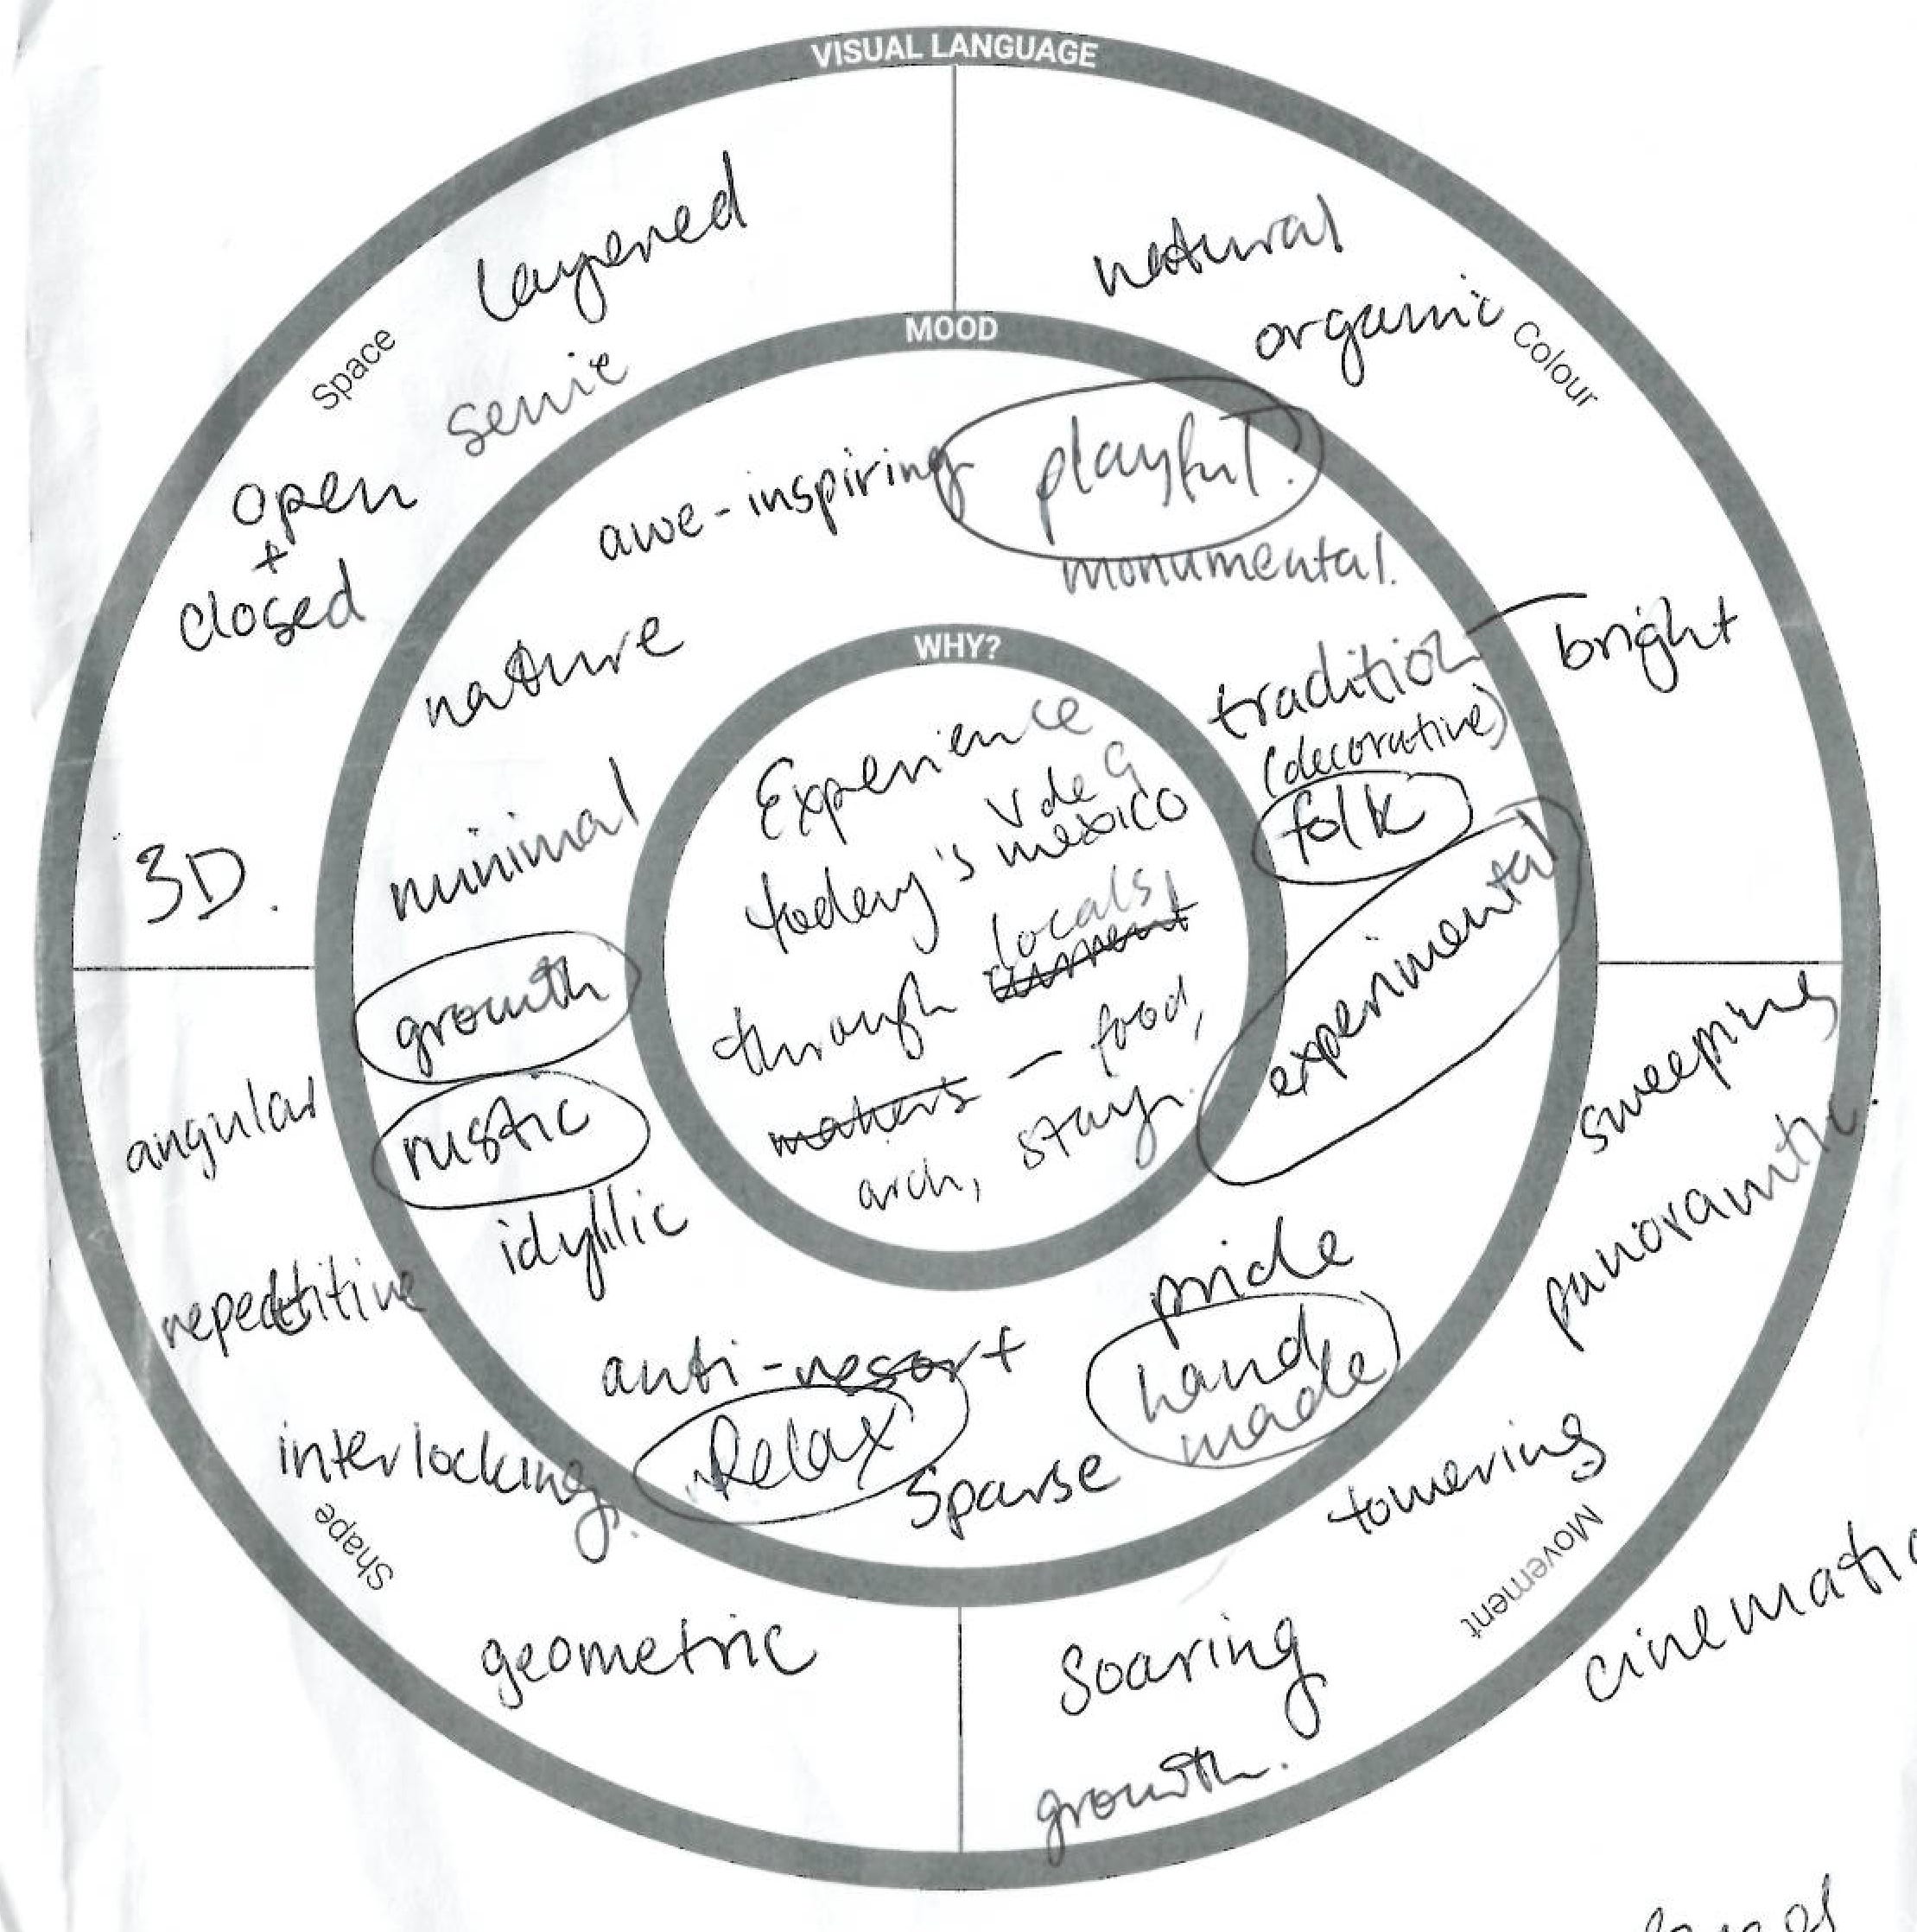 VISUAL LANGUAGE
layered
natural
organic
Space
Colour
senic
open
+
closed
3D.
bright
MOOD
awe-inspiring
playful.
monumental.
nature
tradition
(decorative)
folk
minimal
experimental
growth
rustic
idyllic
pride
hand
made
anti-resort
Relax
Sparse
WHY?
Experience
V de G
today's mexico
locals
through current
makers — food,
arch, stay.
angular
repetitive
interlocking.
Shape
geometric
sweeping
panoramic.
towering
Movement
cinematic
Soaring
growth.